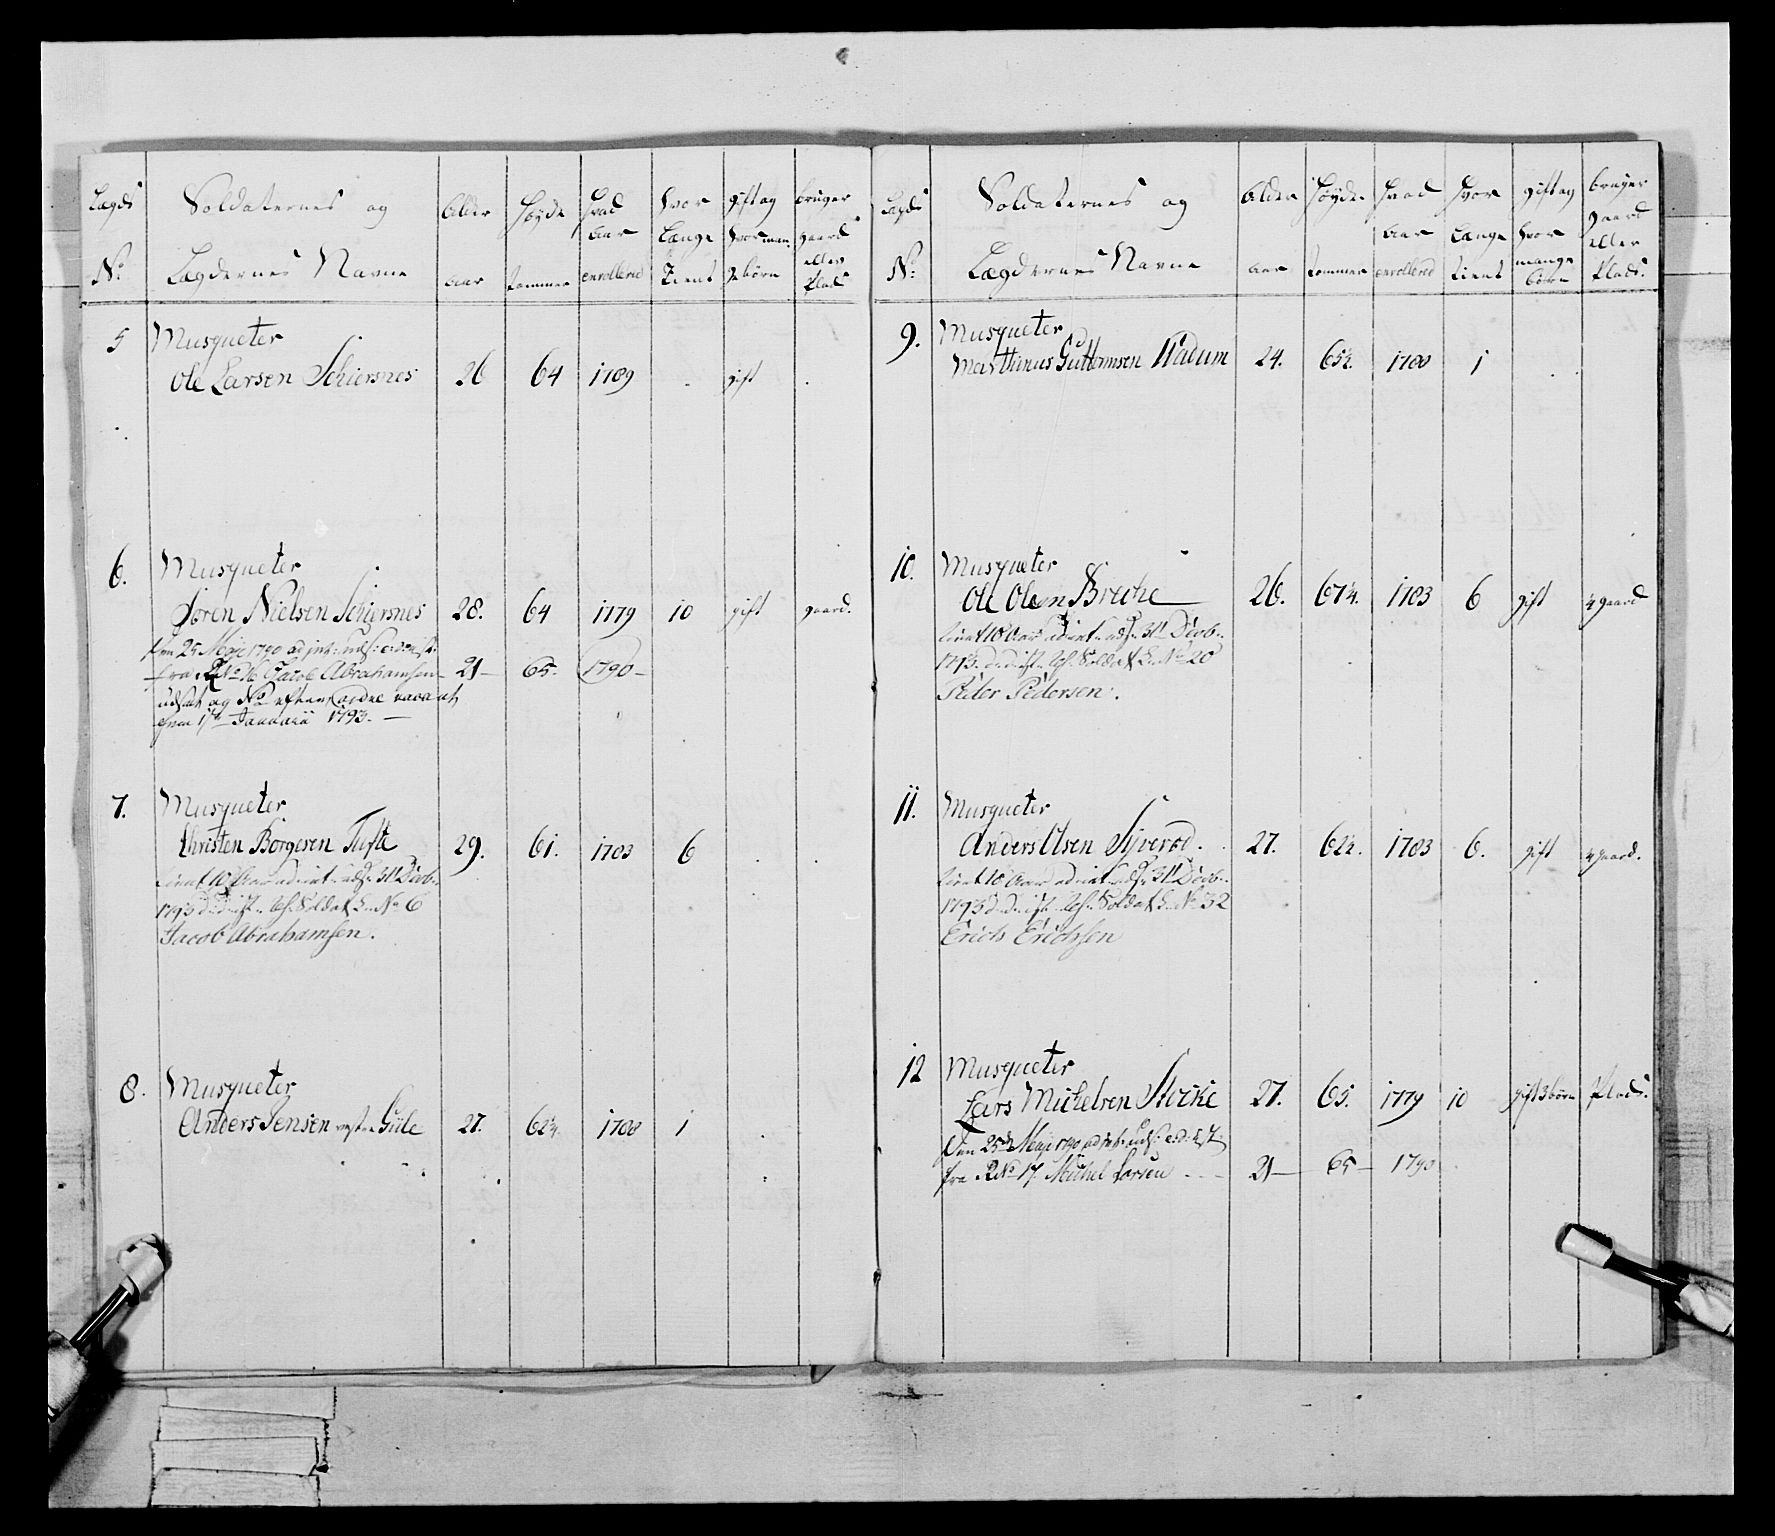 Lægds
No:
Soldaternes og
Lægdernes Navne
Alder
aar
Høyde
tommer
Hvad
Aar
enrollered
Hvor
Længe
tient
gift og
hvor man
ge børn
bruger
gaard
eller
Plads
5
Musqueter
Ole Larsen Schiersnes 26 64 1789 gift
6.
Musqueter
Søren Nielsen Schiersnes 28. 64 1779 10 gift gaard.
Den 25 Maji 1790
fra No 16 Jacob Abrahamsen 21 65. 1790
udsat og No efter ordre vacant
den 1ste Januarii 1793.
7.
Musqueter
Christen Børgesen Tufte 29. 61. 1783 6
tient 10 Aar 31te Decb.
1793 Soldat No 6
Jacob Abrahamsen.
8.
Musqueter
Anders Jensen Giile 27. 62¼ 1788 1
Lægds
No:
Soldaternes og
Lægdernes Navne
Alder
aar
Høyde
tommer
Hvad
Aar
enrollered
Hvor
Længe
tient
gift og
hvor
mange
børn
bruger
gaard
eller
Plads.
9.
Musqueter
Marthinus Guttormsen Wadum 24. 65½. 1788 1
10.
Musqueter
Ole Olsen Breche 26. 67¼. 1783 6 gift ¼ gaard
tient 10 Aar 31te Decb.
1793. Soldat No 20
Peder Pedersen.
11.
Musqueter
Anders Olsen Syverød. 27. 62½. 1783 6. gift ¼ gaard.
tient 10 Aar 31te Decb.
1793 Soldat No 32
Erich Erichsen
12
Musqueter
Lars Michelsen Stocke 27. 65. 1779 10 gift 3 børn Plads.
Den 25de Maji 1790
fra No 17. Michel Larsen 21 65 1790